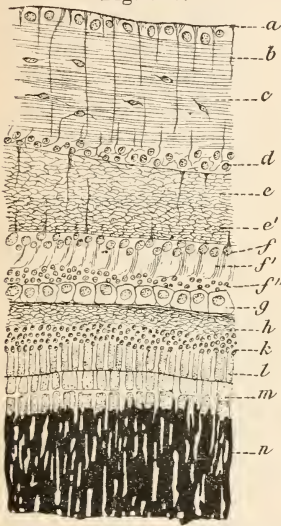 a
b
c
d
e
e'
f
f'
f"
g
h
k
l
m
n